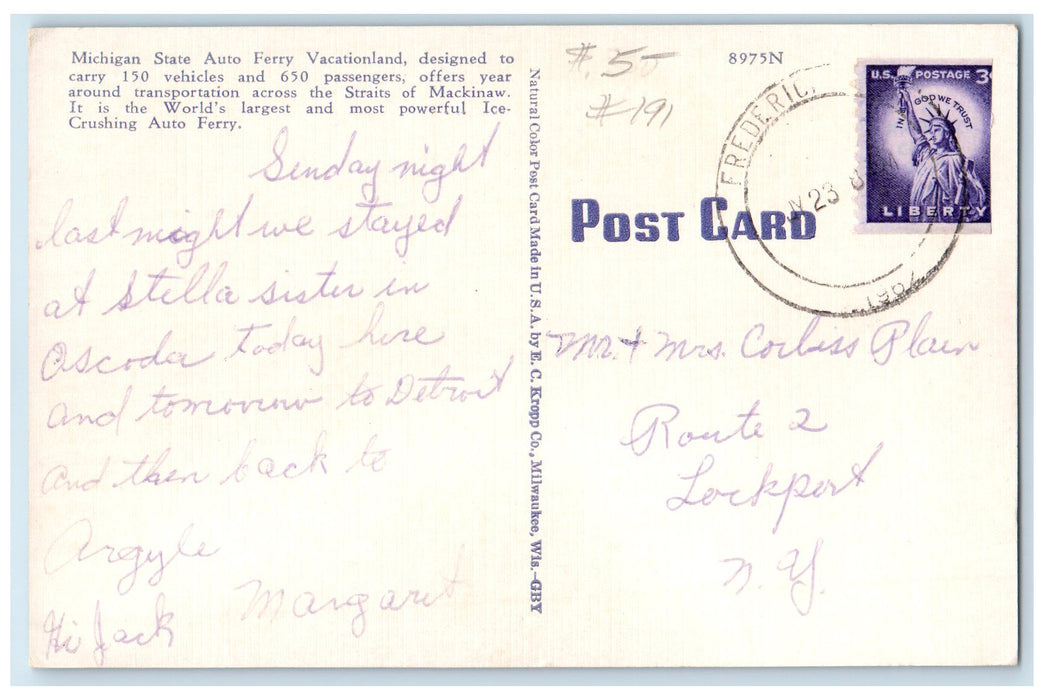 Michigan State Auto Ferry Vacationland, designed to
carry 150 vehicles and 650 passengers, offers year
around transportation across the Straits of Mackinaw.
It is the World's largest and most powerful Ice-
Crushing Auto Ferry.
Sunday night
last night we stayed
at Stella sister in
Oscoda today here
and tomorrow to Detroit
and then back to
Argyle
Margaret
Hi Jack
Natural Color Post Card Made in U.S.A. by E. C. Kropp Co., Milwaukee, Wis.—GBY
#.5-
#191
8975N
FREDERIC
23
U.S. POSTAGE 3
IN GOD WE TRUST
LIBERTY
POST CARD
Mr. + Mrs. Corliss Plain
Route 2
Lockport
N.Y.